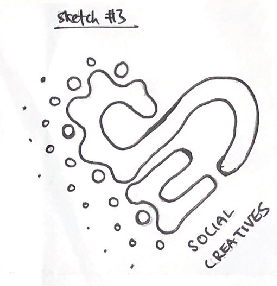 sketch #3
SOCIAL
CREATIVES